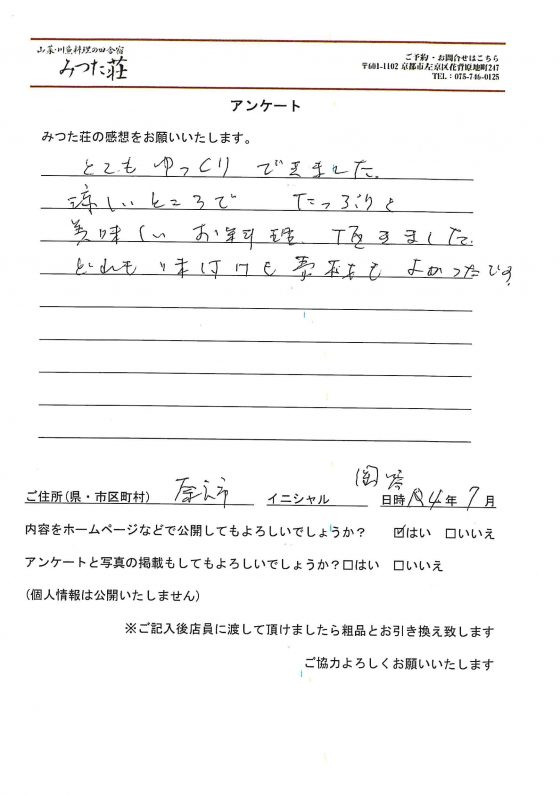 山菜・川魚料理の田舎宿
みつた荘
ご予約・お問合せはこちら
〒601-1102 京都市左京区花脊原地町247
TEL：075-746-0125
アンケート
みつた荘の感想をお願いいたします。
とてもゆっくりできました。
涼しいところで たっぷりと
美味しいお料理、頂きました。
どれも味付けも素材もよかったです。
ご住所（県・市区町村） イニシャル 日時 R4年 7月
内容をホームページなどで公開してもよろしいでしょうか？ ☑はい □いいえ
アンケートと写真の掲載もしてもよろしいでしょうか？□はい □いいえ
（個人情報は公開いたしません）
※ご記入後店員に渡して頂けましたら粗品とお引き換え致します
ご協力よろしくお願いいたします